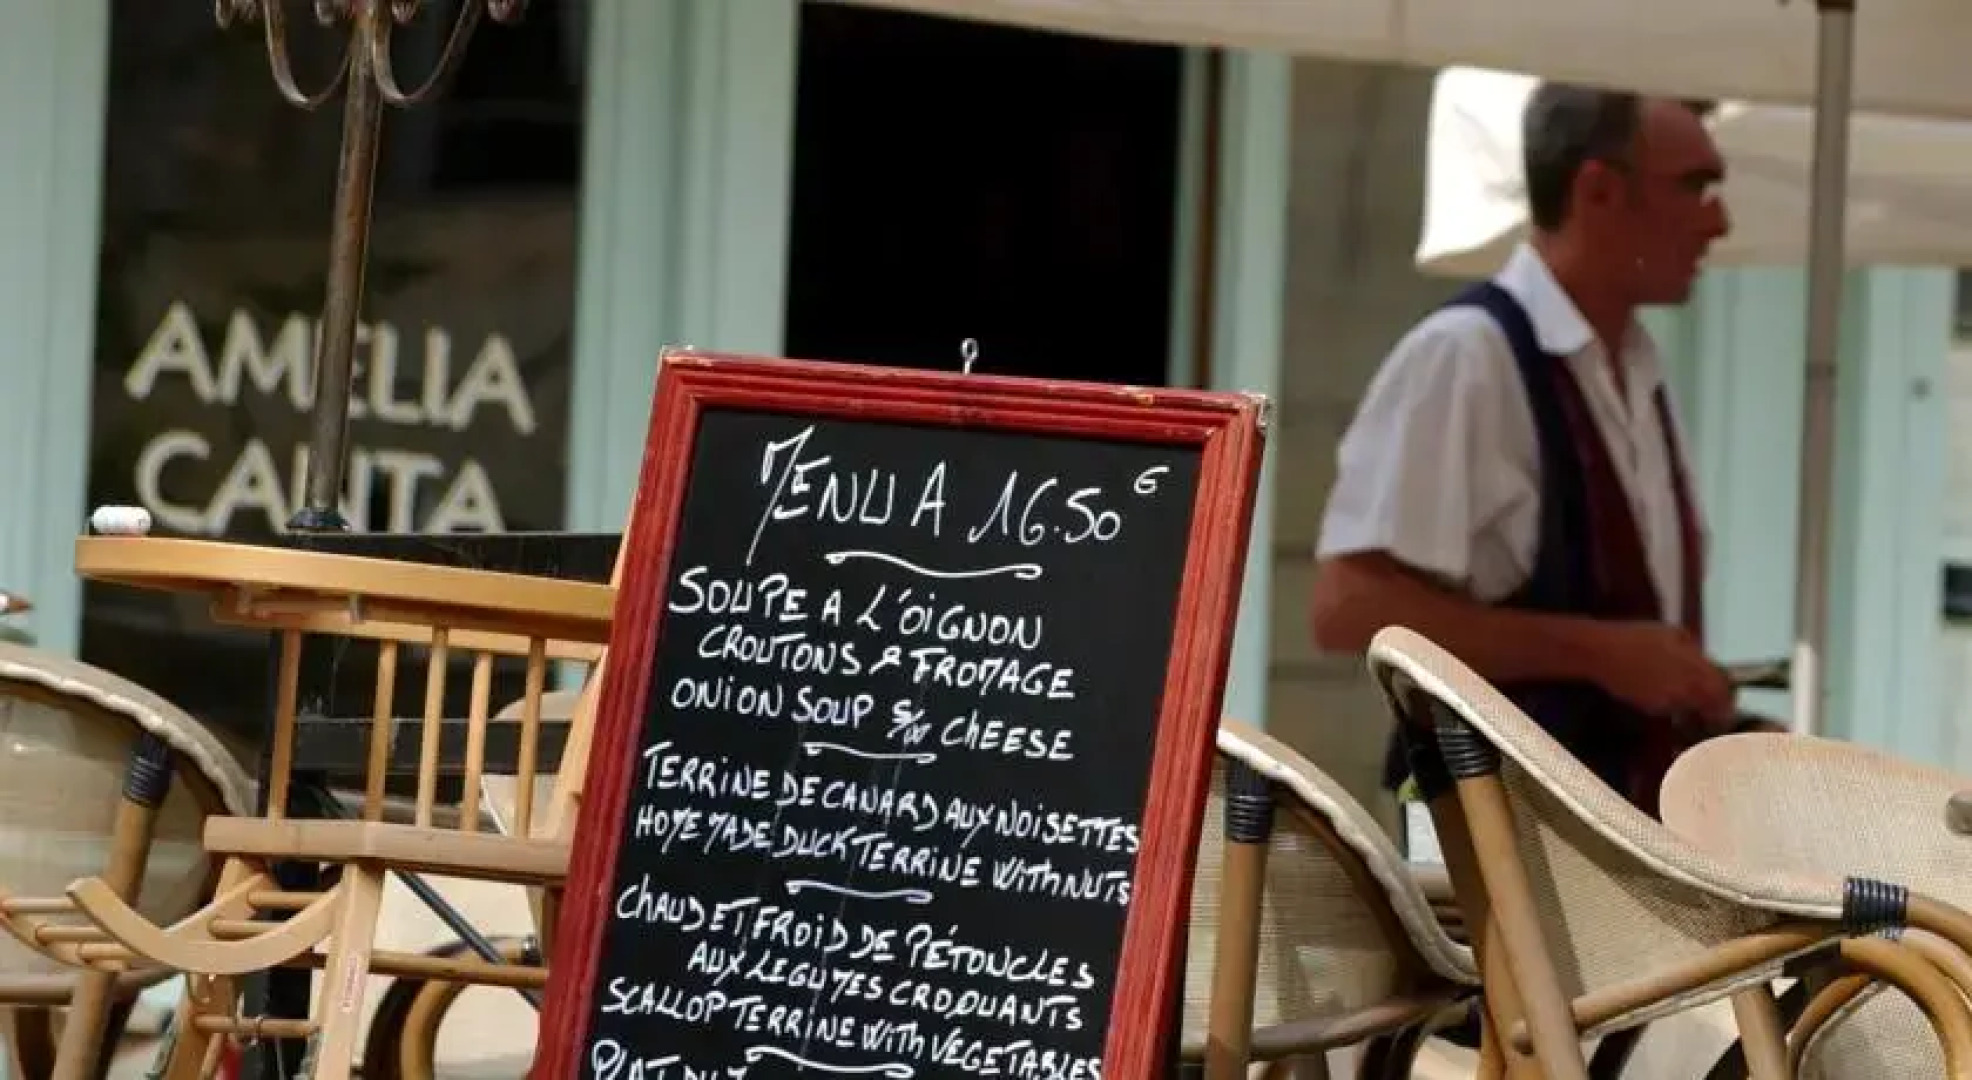 AMELIA
CANTA
MENU A 16.50€
SOUPE A L'OIGNON
CROUTONS & FROMAGE
ONION SOUP CHEESE
TERRINE DE CANARD AUX NOISETTES
HOMEMADE DUCK TERRINE WITH NUTS
CHAUD ET FROID DE PÉTONCLES
AUX LEGUMES CROQUANTS
SCALLOP TERRINE WITH VEGETABLES
PLAT DU